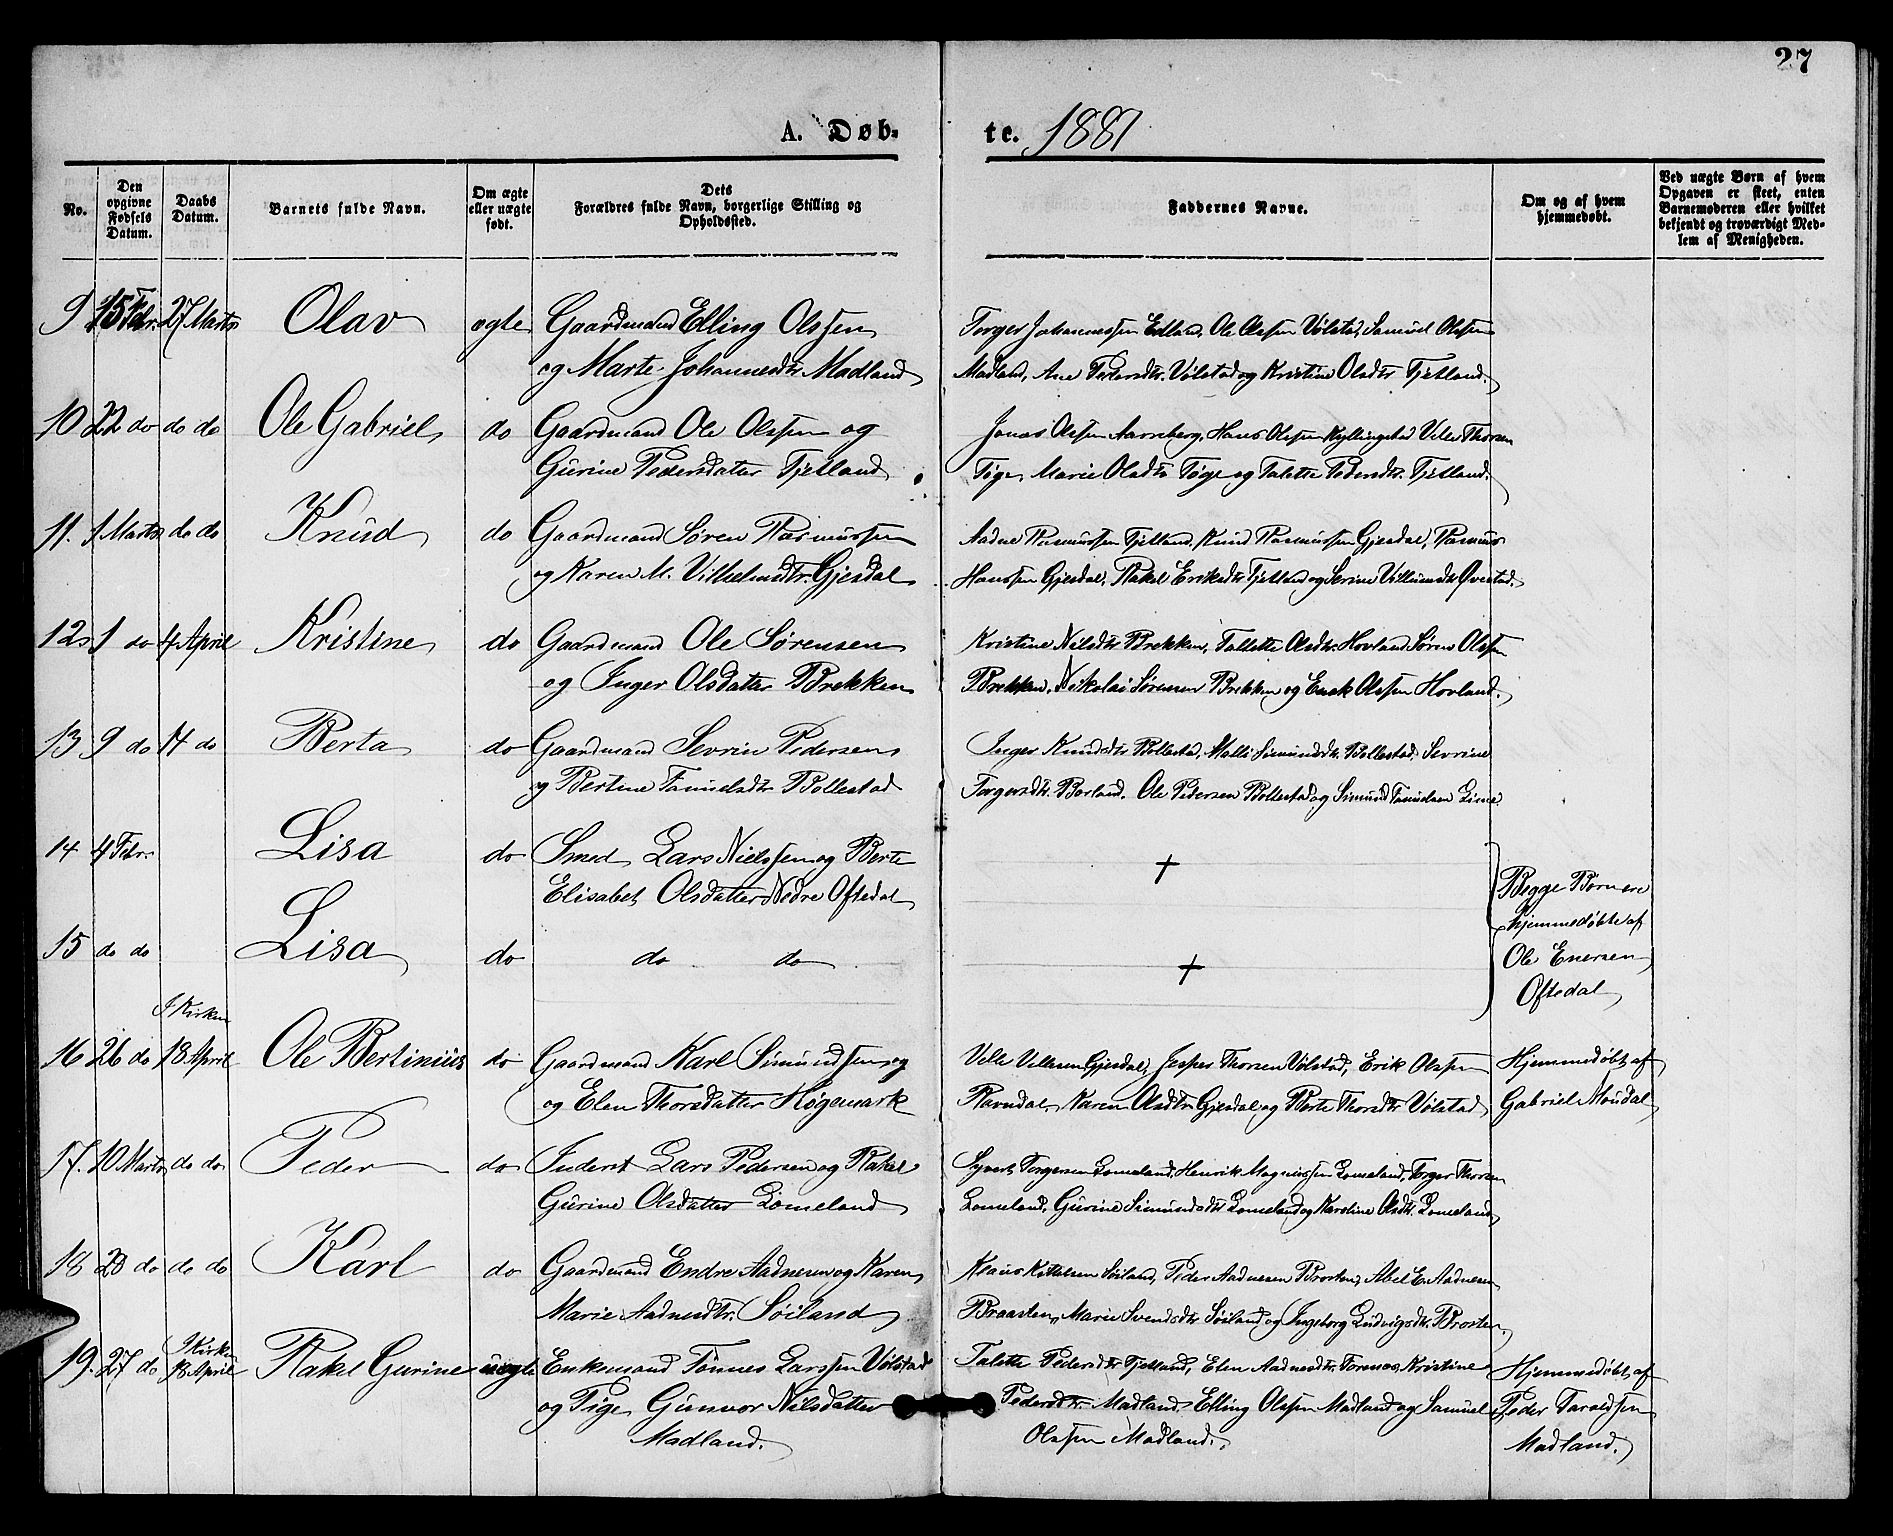 27
A. Døb-
te. 1881
No.
Den opgivne Fødsels Datum.
Daabs Datum.
Barnets fulde Navn.
Om ægte eller uægte født.
Dets Forældres fulde Navn, borgerlige Stilling og Opholdssted.
Faddernes Navne.
Om og af hvem hjemmedøbt.
Ved uægte Børn af hvem Opgaven er skeet, enten Barnemoderen eller hvilket bekjendt og troværdigt Medlem af Menigheden.
9 15 Febr. 27 Marts Olav ægte Gaardmand Elling Olssen
og Marte Johannesdtr. Madland
Torger Johannessen Edland, Ole Olssen Vølstad, Samuel Olssen
Madland, Ane Pedersdtr. Vølstad og Kristine Olsdtr Tjetland.
10 22 do do do Ole Gabriel do Gaardmand Ole Olssen og
Gurine Pedersdatter Tjetland
Jonas Olssen Aarreberg, Hans Olssen Kyllingstad Velle Thorsen
Tøge, Marie Olsdtr Tøge og Talette Pedersdtr. Tjetland.
11. 1 Marts do do Knud do Gaardmand Søren Rasmussen
og Karen M. Vilhelmdtr. Gjesdal
Aadne Rasmussen Tjetland, Knud Rasmussen Gjesdal, Rasmus
Hanssen Gjesdal, Rakel Eriksdtr Tjetland og Serine Villumsdtr Øvestad.
12 1 do 4 April Kristine do Gaardmand Ole Sørensen
og Inger Olsdatter Brekken
Kristine Nilsdtr Brekken, Tallette Olsdtr. Hovland, Søren Olssen
Brekken, Nikolai Sørensen Brekken og Enok Olssen Hovland.
13 9 do 14 do Berta do Gaardmand Sevrin Pedersen
og Bertine Tamielsdtr Bollestad
Inger Knudsdtr Bollestad, Malli Simunsdtr. Bollestad, Sevrine
Torgersdtr. Børland. Ole Pedersen Bollestad og Simund Tamielsen Lime
14 4 Febr. Lisa do Smed Lars Nielssen og Berte
Elisabet Olsdatter Nedre Oftedal
†
Begge Børnene
hjemmedøbte af
Ole Enersen
Oftedal
15 do do Lisa do do do
†
16 26 do I Kirken 18 April Ole Bertinius do Gaardmand Karl Simundsen og
og Elen Thorsdatter Høgemark
Velle Vellesen Gjesdal, Jesper Thorsen Vølstad, Erik Olssen
Ravndal, Karen Olsdtr Gjesdal og Berte Thorsdtr. Vølstad
Hjemmedøbt af
Gabriel Moudal
17. 10 Marts do do Peder do Inderst Lars Pedersen og Rakel
Gurine Olsdatter Lomeland
Syvert Torgersen Lomeland, Henrik Magnussen Lomeland, Torger Thorsen
Lomeland, Gurine Simundsdtr Lomeland og Karoline Olsdtr. Lomeland
18 23 do do do Karl do Gaardmand Endre Aadnesen og Karen
Marie Aadnesdtr. Søiland
Klaus Kittelsen Søiland, Peder Aadnesen Brosten, Abel E. Aadnesen
Braasten, Marie Svendsdtr Søiland og Ingeborg Ludvigsdtr. Brosten.
19. 27 do I Kirken 18 April Rakel Gurine uægte Enkemand Tønnes Larssen Vølstad
og Pige Gunvor Nilsdatter
Madland.
Talette Pedersdtr Tjetland, Elen Aadnesdtr. Tornes, Kristine
Pedersdtr. Madland, Elling Olssen Madland og Samuel
Olssen Madland.
Hjemmedøbt af
Peder Taraldsen
Madland.